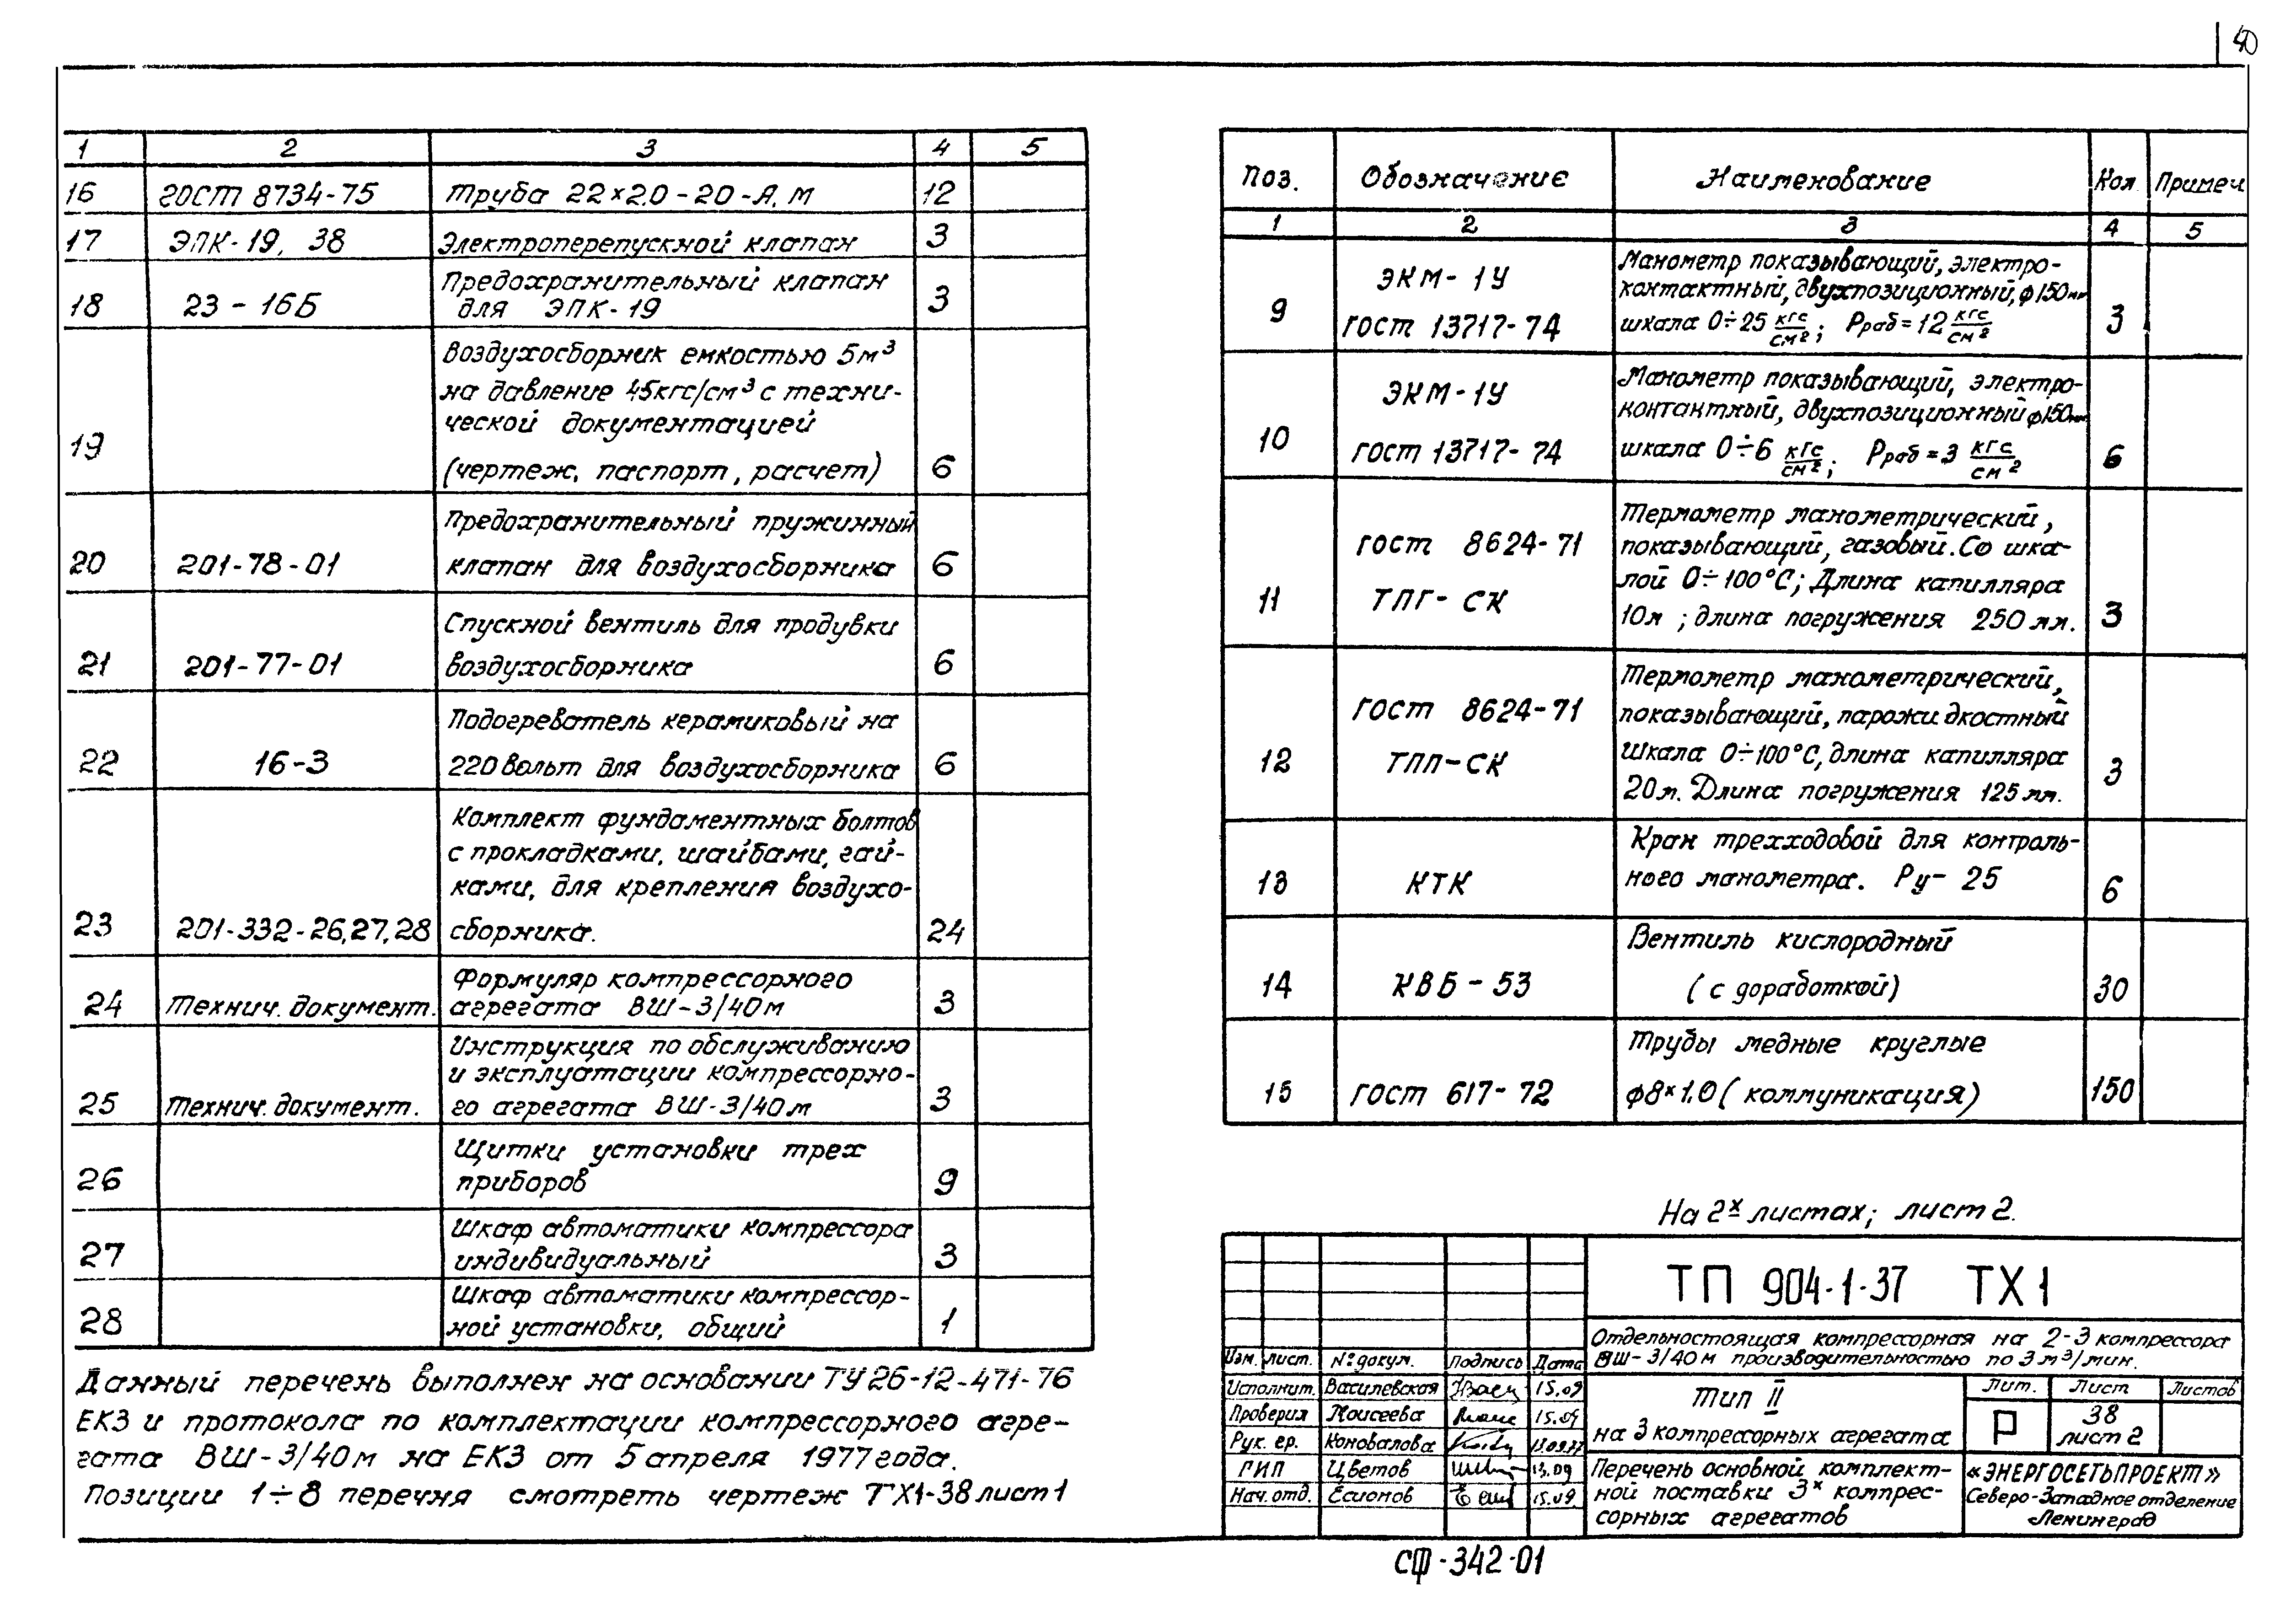 40
1 2 3 4 5
16 ГОСТ 8734-75 Труба 22×2.0-20-А, М 12
17 ЭПК-19, 38 Электроперепускной клапан 3
Предохранительный клапан
18 23-16Б для ЭПК-19 3
Воздухосборник емкостью 5м³
на давление 45кгс/см³ с техни-
ческой документацией
19 (чертеж, паспорт, расчет) 6
Предохранительный пружинный
20 201-78-01 клапан для воздухосборника 6
Спускной вентиль для продувки
21 201-77-01 воздухосборника 6
Подогреватель керамиковый на
22 16-3 220 вольт для воздухосборника 6
Комплект фундаментных болтов
с прокладками, шайбами, гай-
ками, для крепления воздухо-
23 201-332-26,27,28 сборника. 24
Формуляр компрессорного
24 Технич. документ. агрегата ВШ-3/40м 3
Инструкция по обслуживанию
и эксплуатации компрессорно-
25 Технич. документ. го агрегата ВШ-3/40м 3
Щитки установки трех
26 приборов 9
Шкаф автоматики компрессора
27 индивидуальный 3
Шкаф автоматики компрессор-
28 ной установки, общий 1
Данный перечень выполнен на основании ТУ 26-12-471-76
ЕКЗ и протокола по комплектации компрессорного агре-
гата ВШ-3/40м на ЕКЗ от 5 апреля 1977 года.
Позиции 1÷8 перечня смотреть чертеж ТХ1-38 лист 1
Поз. Обозначение Наименование Кол. Примеч
1 2 3 4 5
Манометр показывающий, электро-
ЭКМ-1У контактный, двухпозиционный, ф150мм
9 ГОСТ 13717-74 шкала 0÷25 кгс/см²; Рраб=12 кгс/см² 3
Манометр показывающий, электро-
ЭКМ-1У контантный, двухпозиционный ф150мм
10 ГОСТ 13717-74 шкала 0÷6 кгс/см²; Рраб=3 кгс/см² 6
Термометр манометрический,
ГОСТ 8624-71 показывающий, газовый. Со шка-
лой 0÷100°С; Длина капилляра
11 ТПГ-СК 10м; длина погружения 250 мм. 3
Термометр манометрический,
ГОСТ 8624-71 показывающий, парожидкостный
12 ТПП-СК Шкала 0÷100°С, длина капилляра
20м. Длина погружения 125 мм. 3
Кран трехходовой для контроль-
13 КТК ного манометра. Ру-25 6
Вентиль кислородный
14 КВБ-53 (с доработкой) 30
Трубы медные круглые
15 ГОСТ 617-72 ф8×1.0 (коммуникация) 150
На 2х листах; лист 2.
ТП 904-1-37 ТХ1
Отдельностоящая компрессорная на 2-3 компрессора
ВШ-3/40м производительностью по 3 м³/мин.
Изм. Лист. №докум. Подпись Дата
Исполнит. Василевская 15.09
Проверил Моисеева 15.09
Рук. гр. Коновалова 13.09.77
ГИП Цветов 13.09
Нач. отд. Есионов 15.09
Тип II
на 3 компрессорных агрегата
Лит. Лист Листов
Р 38
лист 2
Перечень основной комплект-
ной поставки 3х компрес-
сорных агрегатов
«ЭНЕРГОСЕТЬПРОЕКТ»
Северо-Западное отделение
Ленинград
СФ-342-01